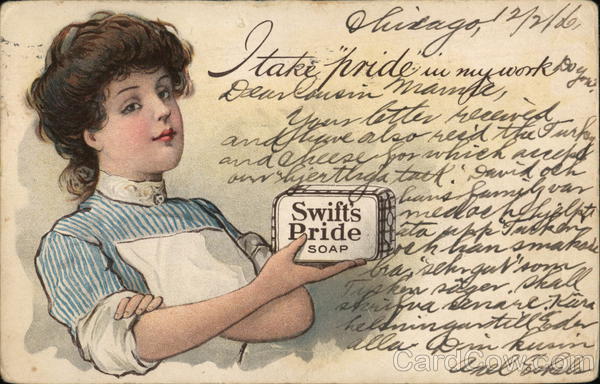 Chicago, 12/2/06
I take "pride" in my work Do you?
Dear Cousin Mamie,
Your letter received
and have also rec'd the Turkey
and cheese for which accept
our "hjertliga tack". David och
hans familj var
med oc hjelpte
äta upp Turkey
och han smakade
bra, "sehr gut" som
Tysken säger. Skall
skrifva senare. Kära
helsningar till Eder
alla. Din kusin
Swift's
Pride
SOAP
CardCow.com